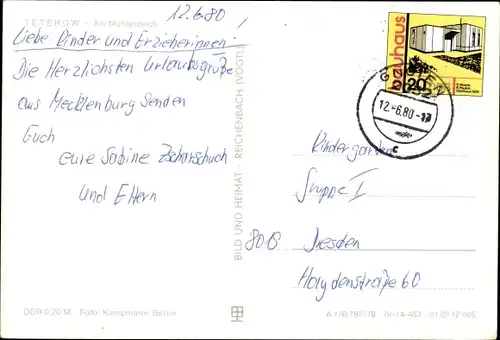 TETEROW – Am Mühlenteich
12.6.80
Liebe Kinder und Erzieherinnen!
Die Herzlichsten Urlaubsgrüße
aus Mecklenburg Senden
Euch
eure Sabine Zscharschuch
und Eltern
DDR 0,20 M Foto: Kampmann Berlin
BILD UND HEIMAT · REICHENBACH (VOGTL)
bauhaus
20
12.-6.80-17
c
Kindergarten
Gruppe I
8018 Dresden
Haydenstraße 60
A 1/B 797/78 IV-14-483 01 03 12 065